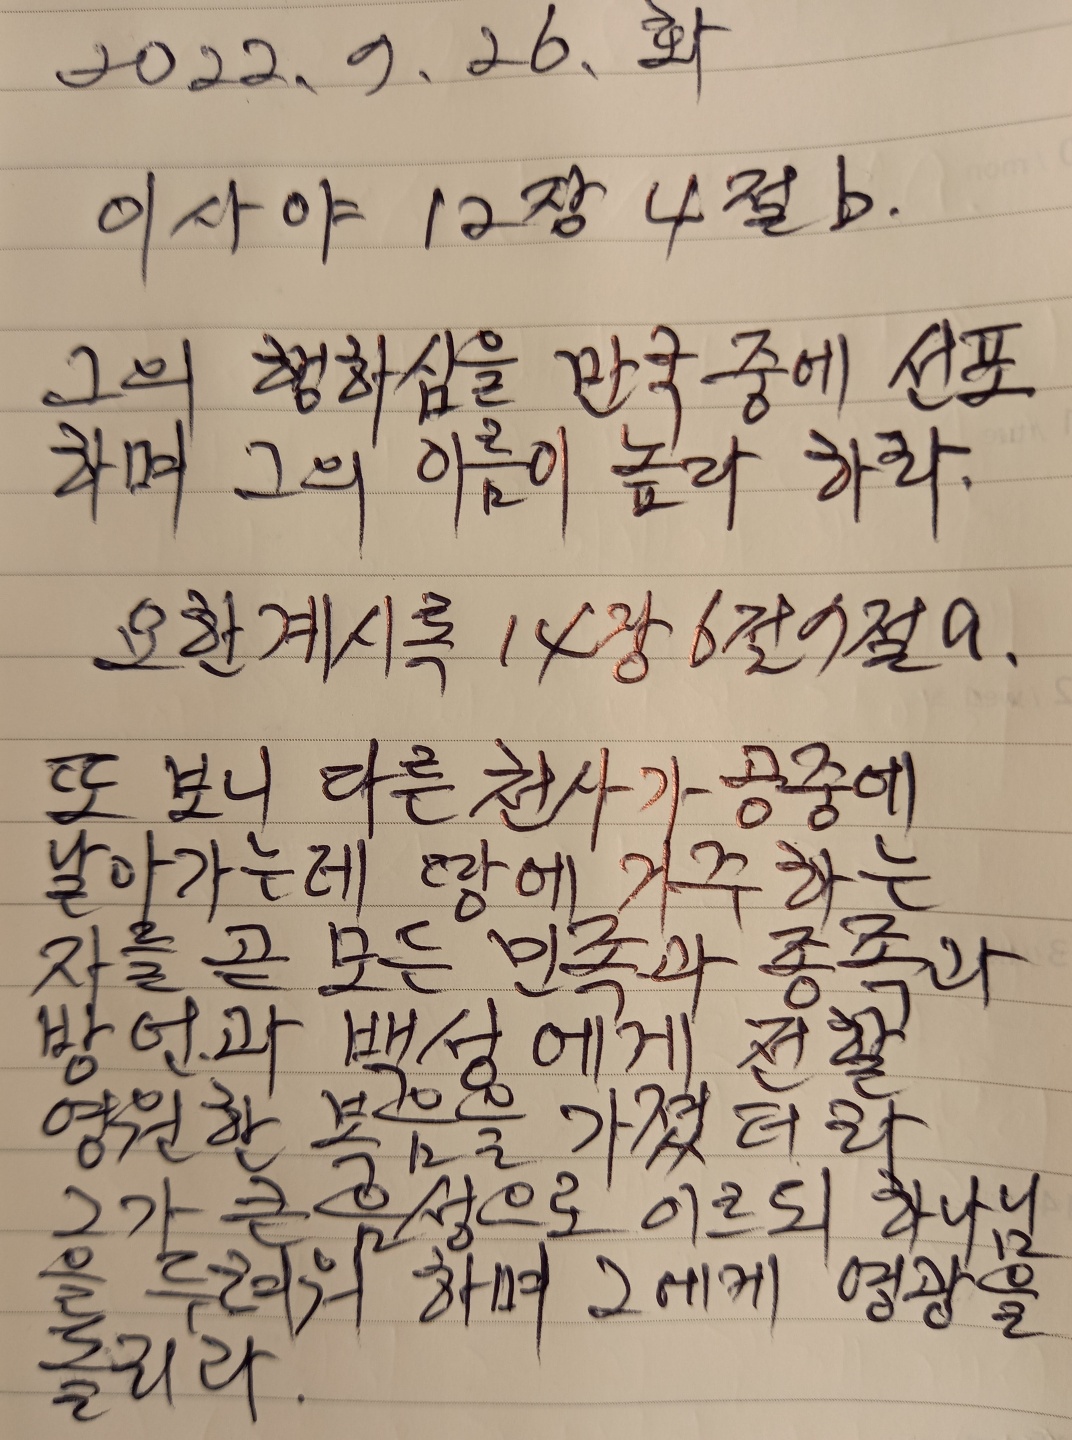 2022. 9. 26. 화
이사야 12장 4절 b.
그의 행하심을 만국 중에 선포
하며 그의 이름이 높다 하라.
요한계시록 14장 6절 7절 a.
또 보니 다른 천사가 공중에
날아가는데 땅에 거주 하는
자를 곧 모든 민족과 종족과
방언과 백성에게 전할
영원한 복음을 가졌더라
그가 큰 음성으로 이르되 하나님
을 두려워 하며 그에게 영광을
돌리라.